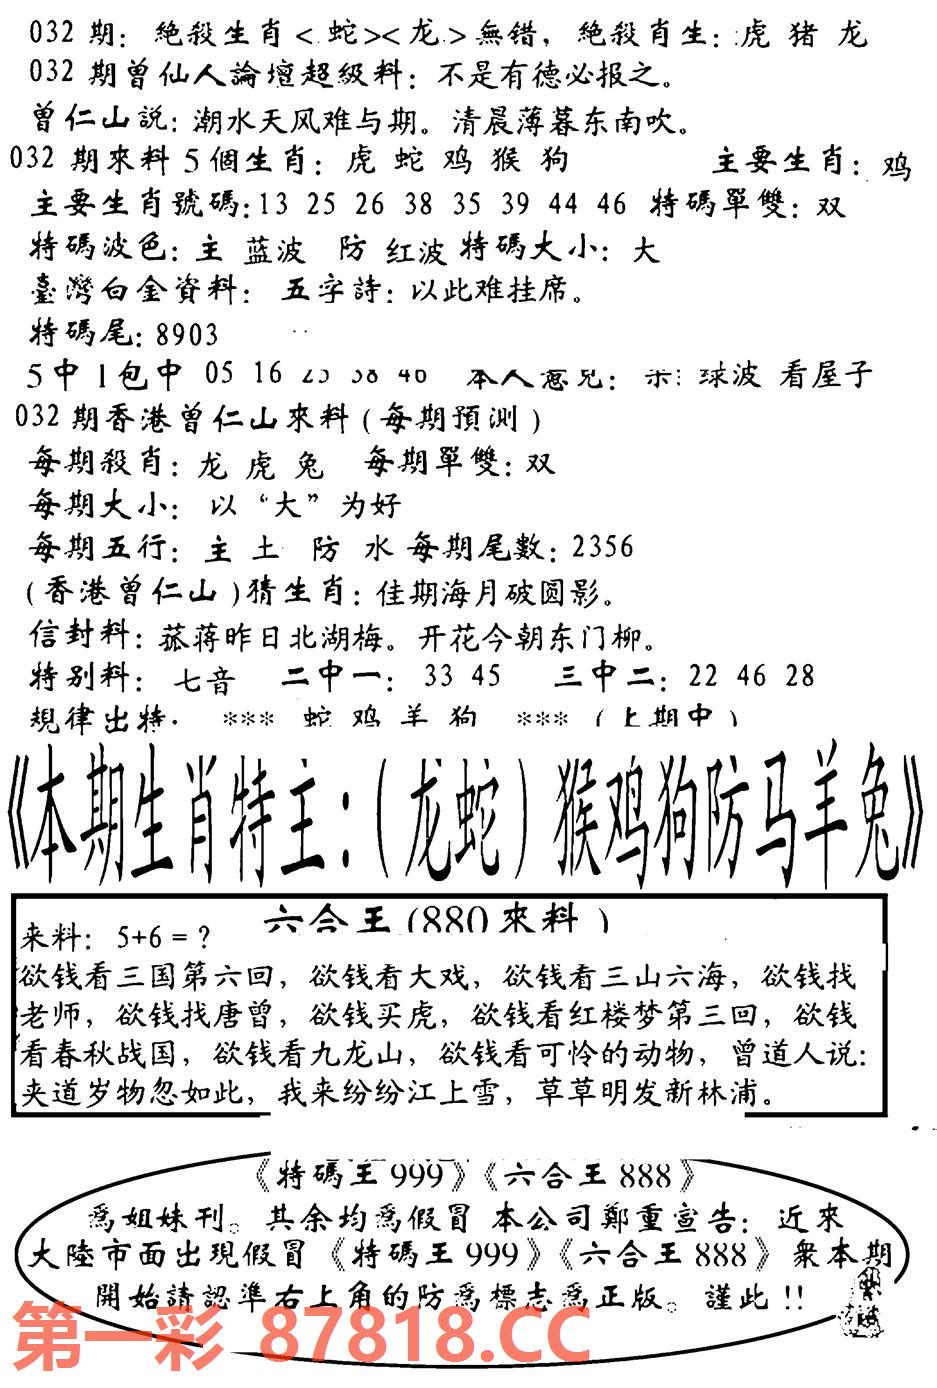 032 期：絶殺生肖<蛇><龙>無错，絶殺肖生：虎 猪 龙
032 期曾仙人論壇超級料：不是有德必报之。
曾仁山説：潮水天风难与期。清晨薄暮东南吹。
032 期來料 5 個生肖：虎 蛇 鸡 猴 狗 主要生肖：鸡
主要生肖號碼：13 25 26 38 35 39 44 46 特碼單雙：双
特碼波色：主 蓝波 防 红波 特碼大小：大
臺灣白金資料： 五字詩：以此难挂席。
特碼尾：8903
5 中 1 包中 05 16 25 38 46 本人意見： 球波 看屋子
032 期香港曾仁山來料（每期預測）
每期殺肖：龙 虎 兔 每期單雙：双
每期大小： 以“大”为好
每期五行：主 土 防 水 每期尾數：2356
（香港曾仁山）猜生肖：佳期海月破圆影。
信封料：菰蒋昨日北湖梅。开花今朝东门柳。
特别料：七音 二中一：33 45 三中二：22 46 28
規律出特： *** 蛇 鸡 羊 狗 ***（上期中）
《本期生肖特主：（龙蛇）猴鸡狗防马羊兔》
六合王（880 來料）
来料：5+6=？
欲钱看三国第六回，欲钱看大戏，欲钱看三山六海，欲钱找
老师，欲钱找唐曾，欲钱买虎，欲钱看红楼梦第三回，欲钱
看春秋战国，欲钱看九龙山，欲钱看可怜的动物，曾道人说：
夹道岁物忽如此，我来纷纷江上雪，草草明发新林浦。
《特碼王 999》《六合王 888》
爲姐妹刊。其余均爲假冒 本公司鄭重宣告：近來
大陸市面出現假冒《特碼王 999》《六合王 888》衆本期
開始請認準右上角的防爲標志爲正版。謹此!!
第一彩 87818.CC